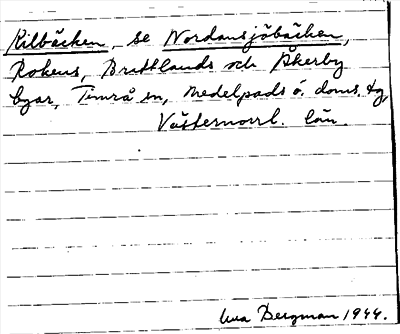 Kilbäcken, se Nordansjöbäcken,
Rokens, Brattlands och Åkerby
byar, Timrå sn, Medelpads ö. doms. tg,
Västernorrl. län
Bergman 1944.